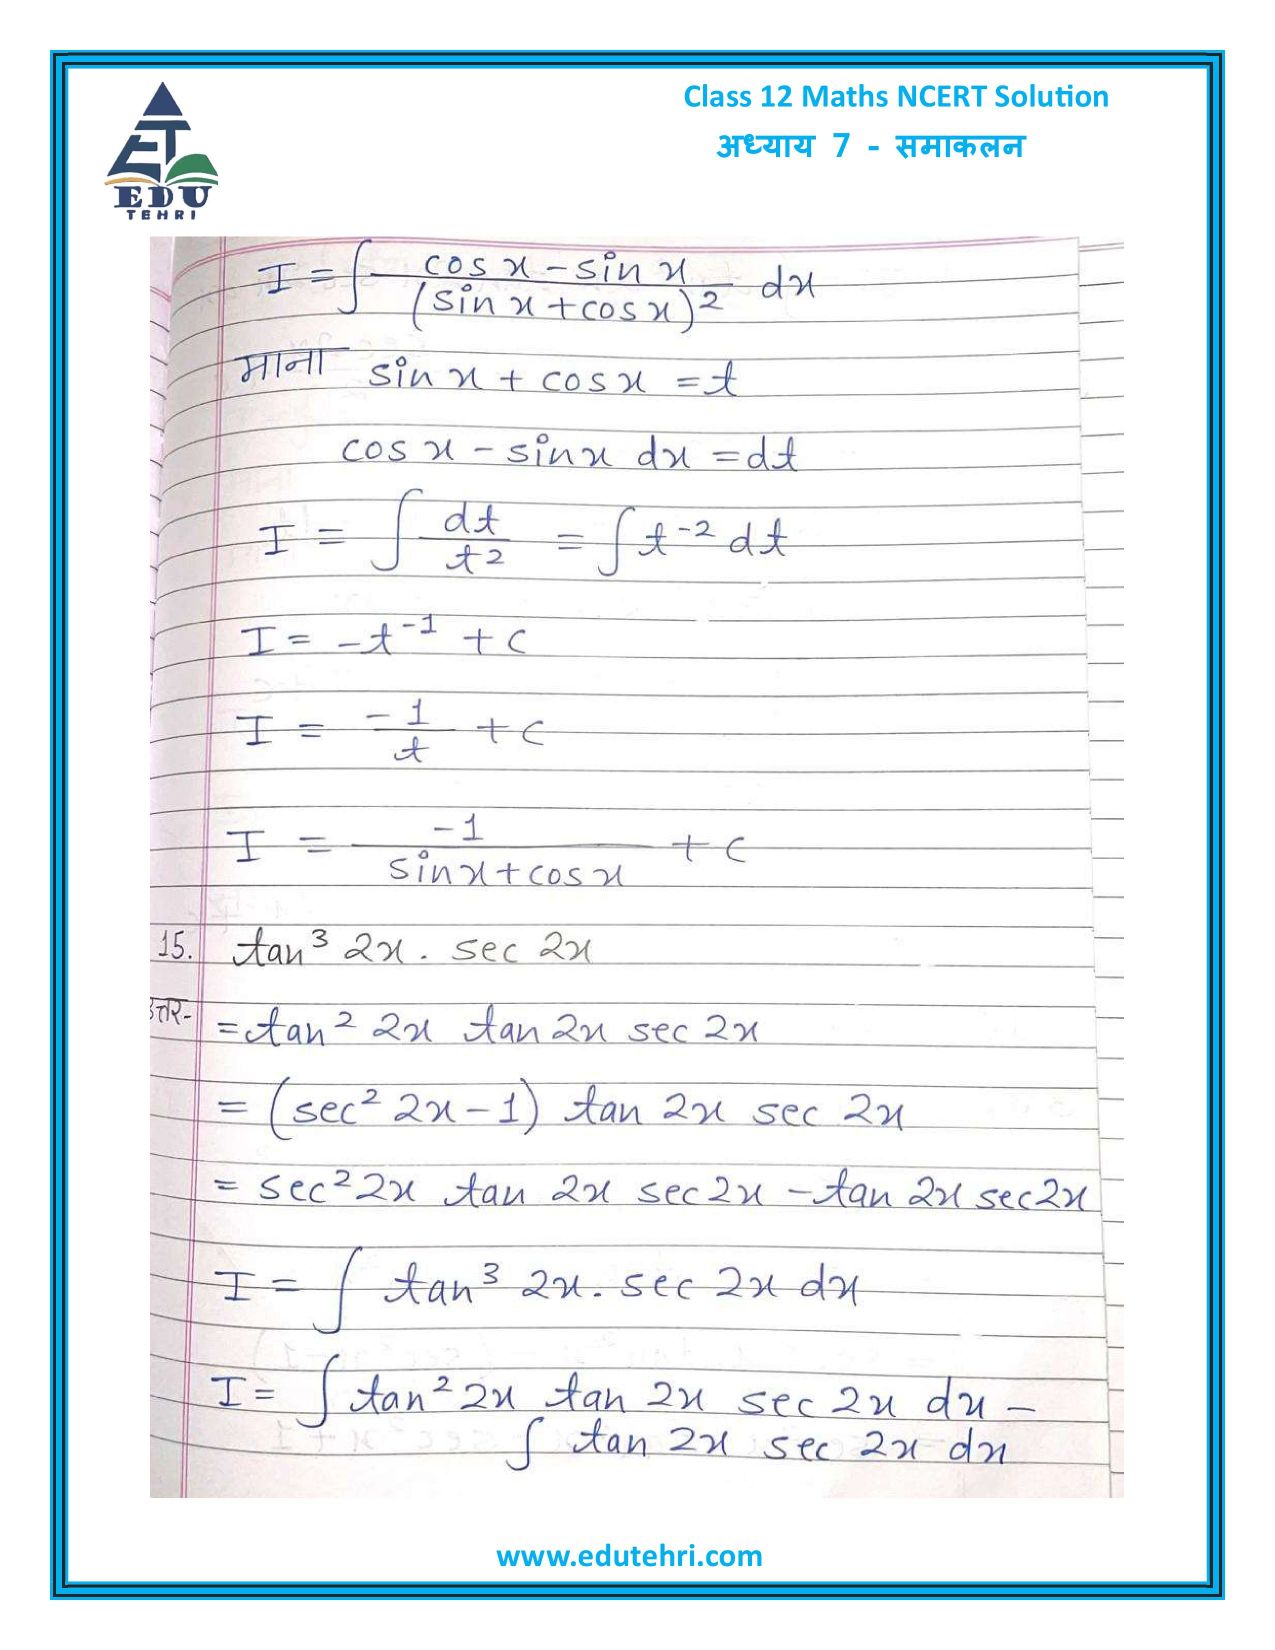 Class 12 Maths NCERT Solution
अध्याय 7 - समाकलन
EDU
TEHRI
I = ∫ cos x - sin x / (sin x + cos x)² dx
माना sin x + cos x = t
cos x - sin x dx = dt
I = ∫ dt / t² = ∫ t⁻² dt
I = -t⁻¹ + c
I = -1 / t + c
I = -1 / sin x + cos x + c
15. tan³ 2x . sec 2x
उत्तर- = tan² 2x tan 2x sec 2x
= (sec² 2x - 1) tan 2x sec 2x
= sec² 2x tan 2x sec 2x - tan 2x sec 2x
I = ∫ tan³ 2x . sec 2x dx
I = ∫ tan² 2x tan 2x sec 2x dx -
∫ tan 2x sec 2x dx
www.edutehri.com